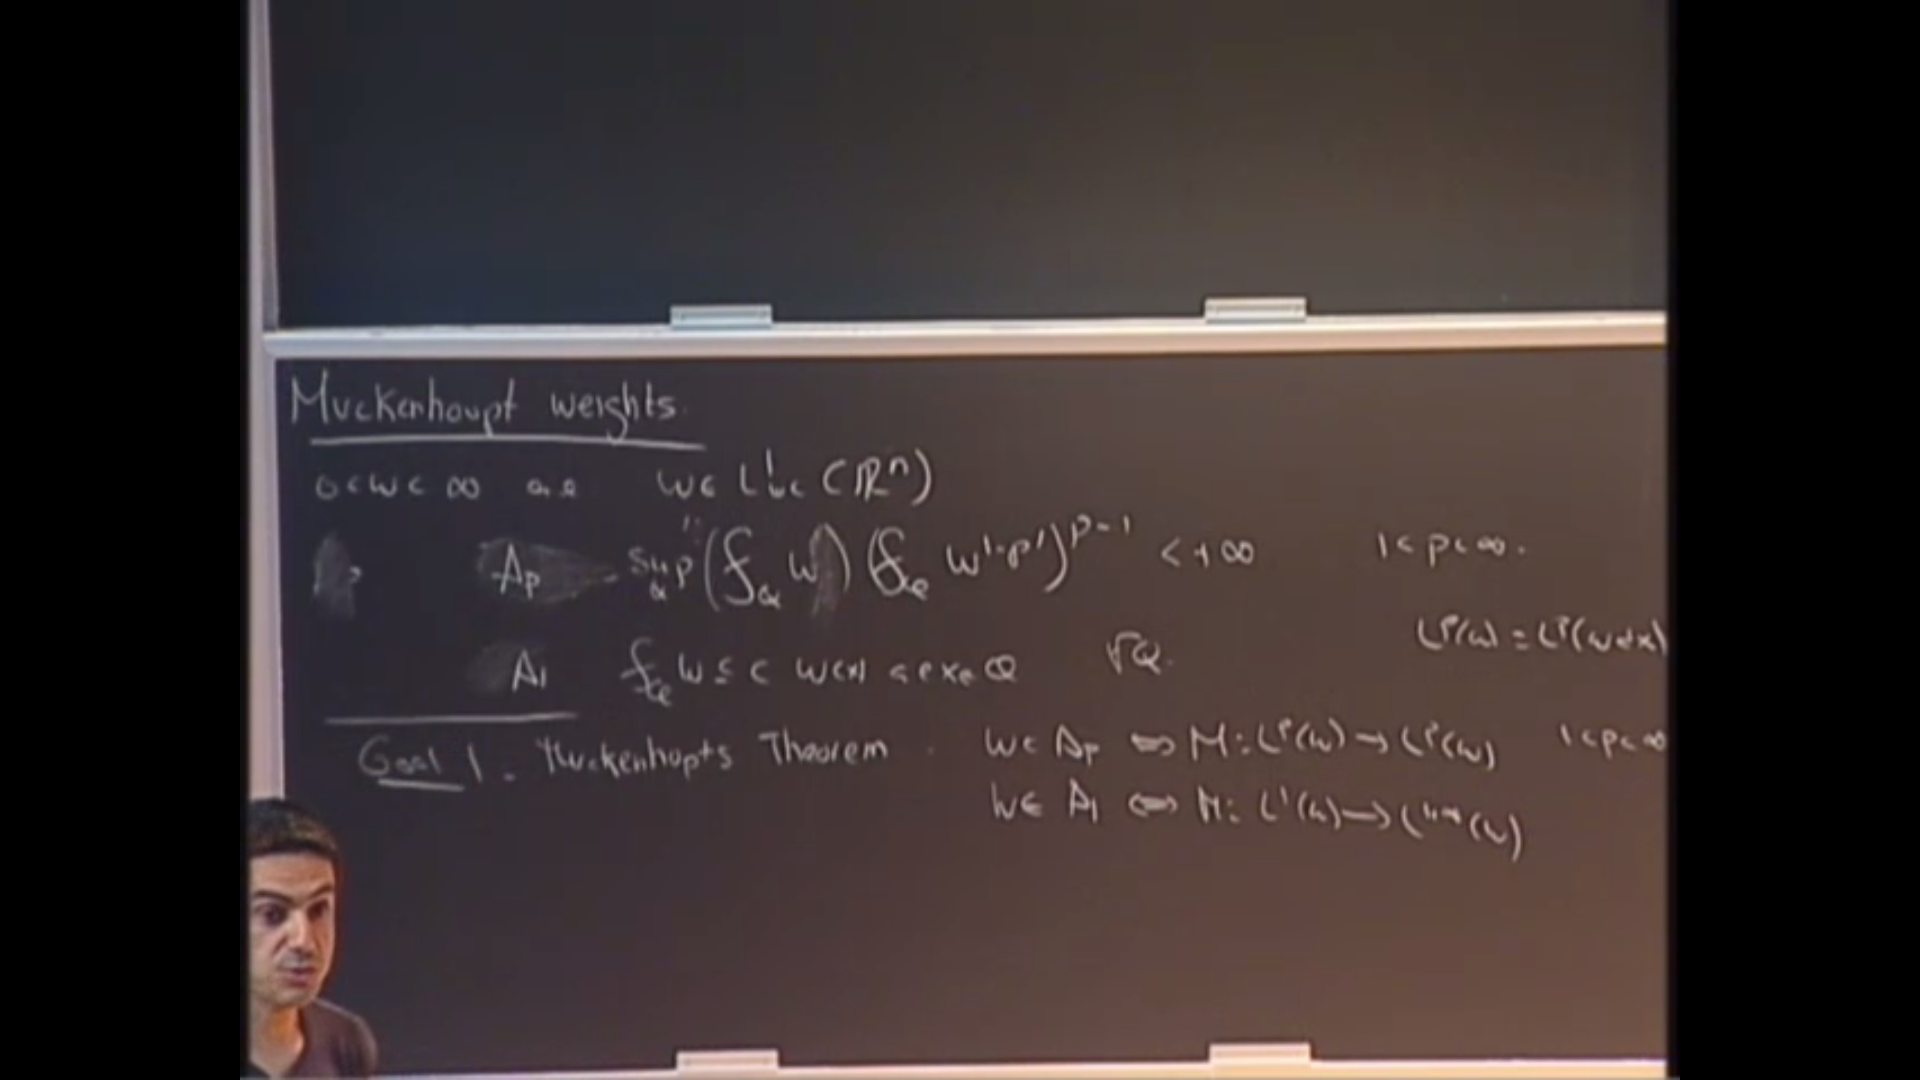 Muckenhoupt weights.
0<w<∞ a.e w∈ L¹loc (ℝⁿ)
Ap sup_Q (⨍_Q w) (⨍_Q w^{1-p'})^{p-1} < +∞ 1<p<∞.
L^p(w) = L^p(wdx)
A₁ ⨍_Q w ≤ C w(x) a.e x∈Q ∀Q.
Goal 1. Muckenhopts Theorem. w∈ Ap ⇔ M: L^p(w) → L^p(w) 1<p<∞
w∈ A₁ ⇔ M: L¹(w) → L^{1,∞}(w)